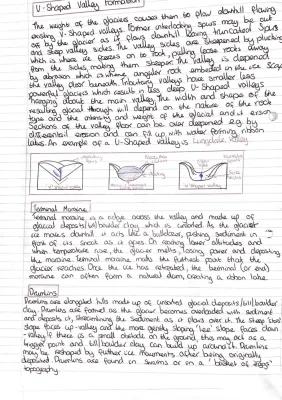 U-Shaped Valley Formation
The weight of the glaciers causes them to flow downhill flowing
existing V-Shaped valleys. Former interlocking spurs may be cut
off by the glacier as it flows downhill leaving truncated spurs
and steep valley sides. The valley sides are steepened by plucking
which is where ice freezes on to rock pulling loose rocks away
from the sides, making them steeper. The valley is deepened
by abrasion which is where angular rock embedded in the ice scrape
the valley floor beneath. Tributary valleys have smaller less
powerful glaciers which result in less deep U-Shaped valleys
hanging above the main valley. The width and shape of the
resulting glacial trough will depend on the nature of the rock
type and the intensity and weight of the glacial and it erosion
Sections of the valley floor can be over deepened by
differential erosion and can fill up with water forming ribbon
lakes. An example of a U-Shaped valley is Langdale Valley
V Shaped Valley
U Shaped Valley
Terminal Moraine
Terminal moraine is a ridge across the valley and made up of
glacial deposits/till/boulder clay which is unsorted. As the glacier
ice moves downhill it acts like a bulldozer, pushing sediment in
front of its snout as it goes. On reaching lower altitudes and
when temperatures rise, the glacier melts, losing power and depositing
the moraine. Terminal moraine marks the furthest point that the
glacier reaches. Once the ice has retreated, the terminal (or end)
moraine can often form a natural dam, creating a ribbon lake.
Drumlins
Drumlins are elongated hills made up of unsorted glacial deposits/till/boulder
clay. Drumlins are formed as the glacier becomes overloaded with sediment
and deposits it, streamlining the sediment as it flows over it. The steep 'stoss'
slope faces up-valley and the more gently sloping 'lee' slope faces down
valley. If there is a small obstacle on the ground, this may act as a
trigger point and till/boulder clay can build up around it. Drumlins
may be reshaped by further ice movements after being originally
deposited. Drumlins are found in swarms or in a 'basket of eggs'
topography.